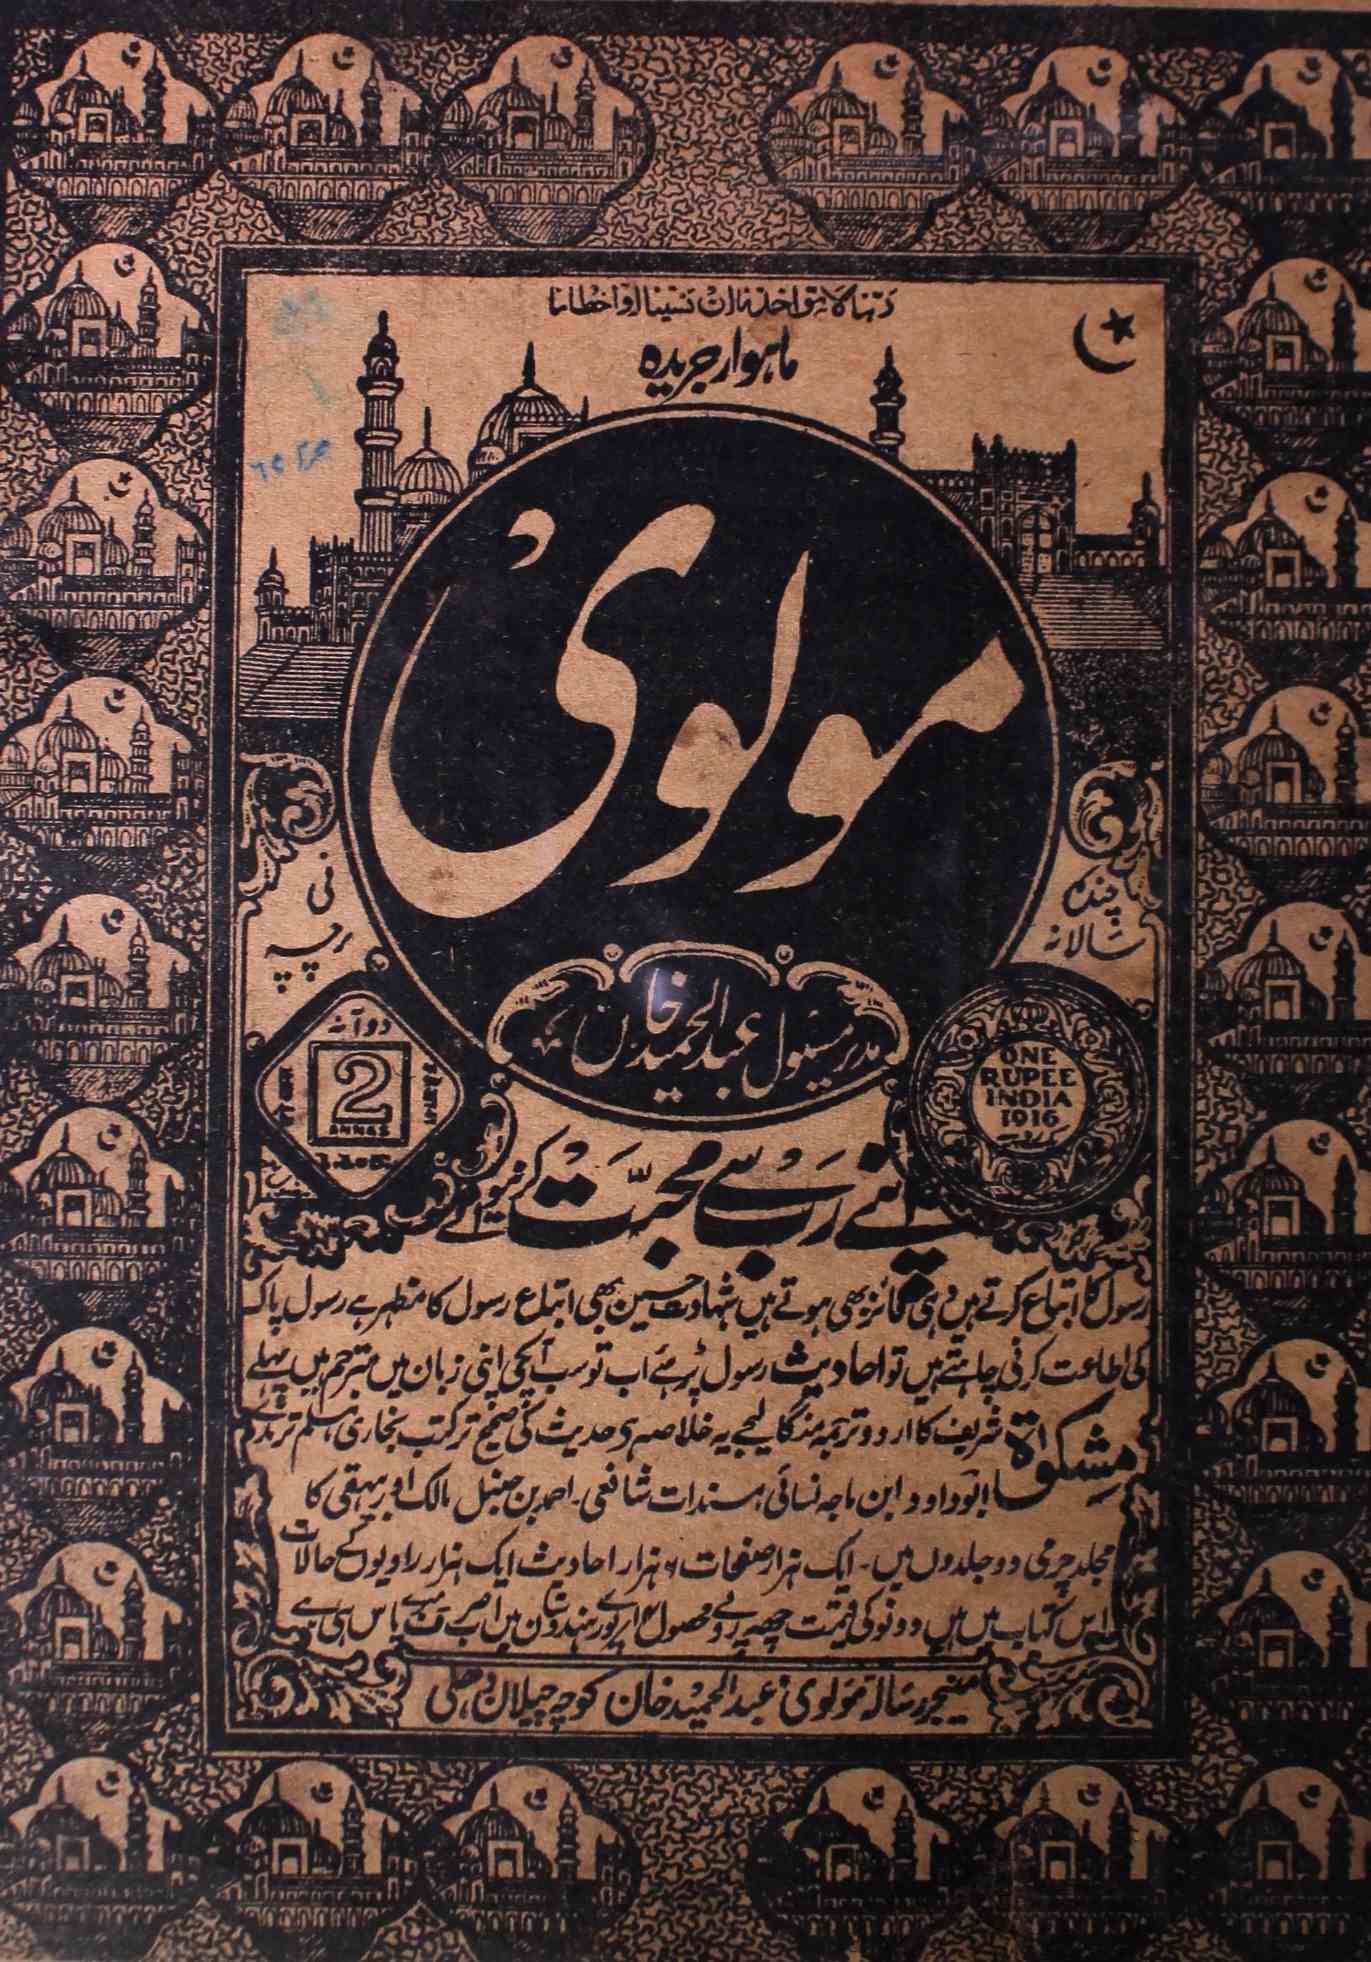 ربنا لا تؤاخذنا ان نسینا او اخطانا
ماہوار جریدہ
مولوی
چندہ
سالانہ
فی
پرچہ
مدیر مسئول عبدالحمید خان
دو آنہ
2
ANNAS
ONE
RUPEE
INDIA
1916
اپنے رب سے محبت کرنیوالے
رسول کا اتباع کرتے ہیں وہی فائز بھی ہوتے ہیں شہادت حسین بھی اتباع رسول کا مظہر ہے رسول پاک
کی اطاعت کرنی چاہتے ہیں تو احادیث رسول پڑہئے اب تو سب آپکی اپنی زبان میں مترجم ہیں پہلے
مشکوٰۃ شریف کا اردو ترجمہ منگا لیجے یہ خلاصہ حدیث کی صحیح تر کتب بخاری مسلم ترمذی
ابوداود ابن ماجہ نسائی مسندات شافعی۔ احمد بن حنبل مالک اور بیہقی کا
مجلد چرمی دو جلدوں میں۔ ایک ہزار صفحات ہزار احادیث ایک ہزار راویوں کے حالات
اس کتاب میں ہیں دونو کی قیمت چھ روپے محصول پورے ہندوستان میں صرف ہمارے پاس ہی ہے
مینیجر رسالہ مولوی عبدالحمید خان کوچہ چیلان دہلی